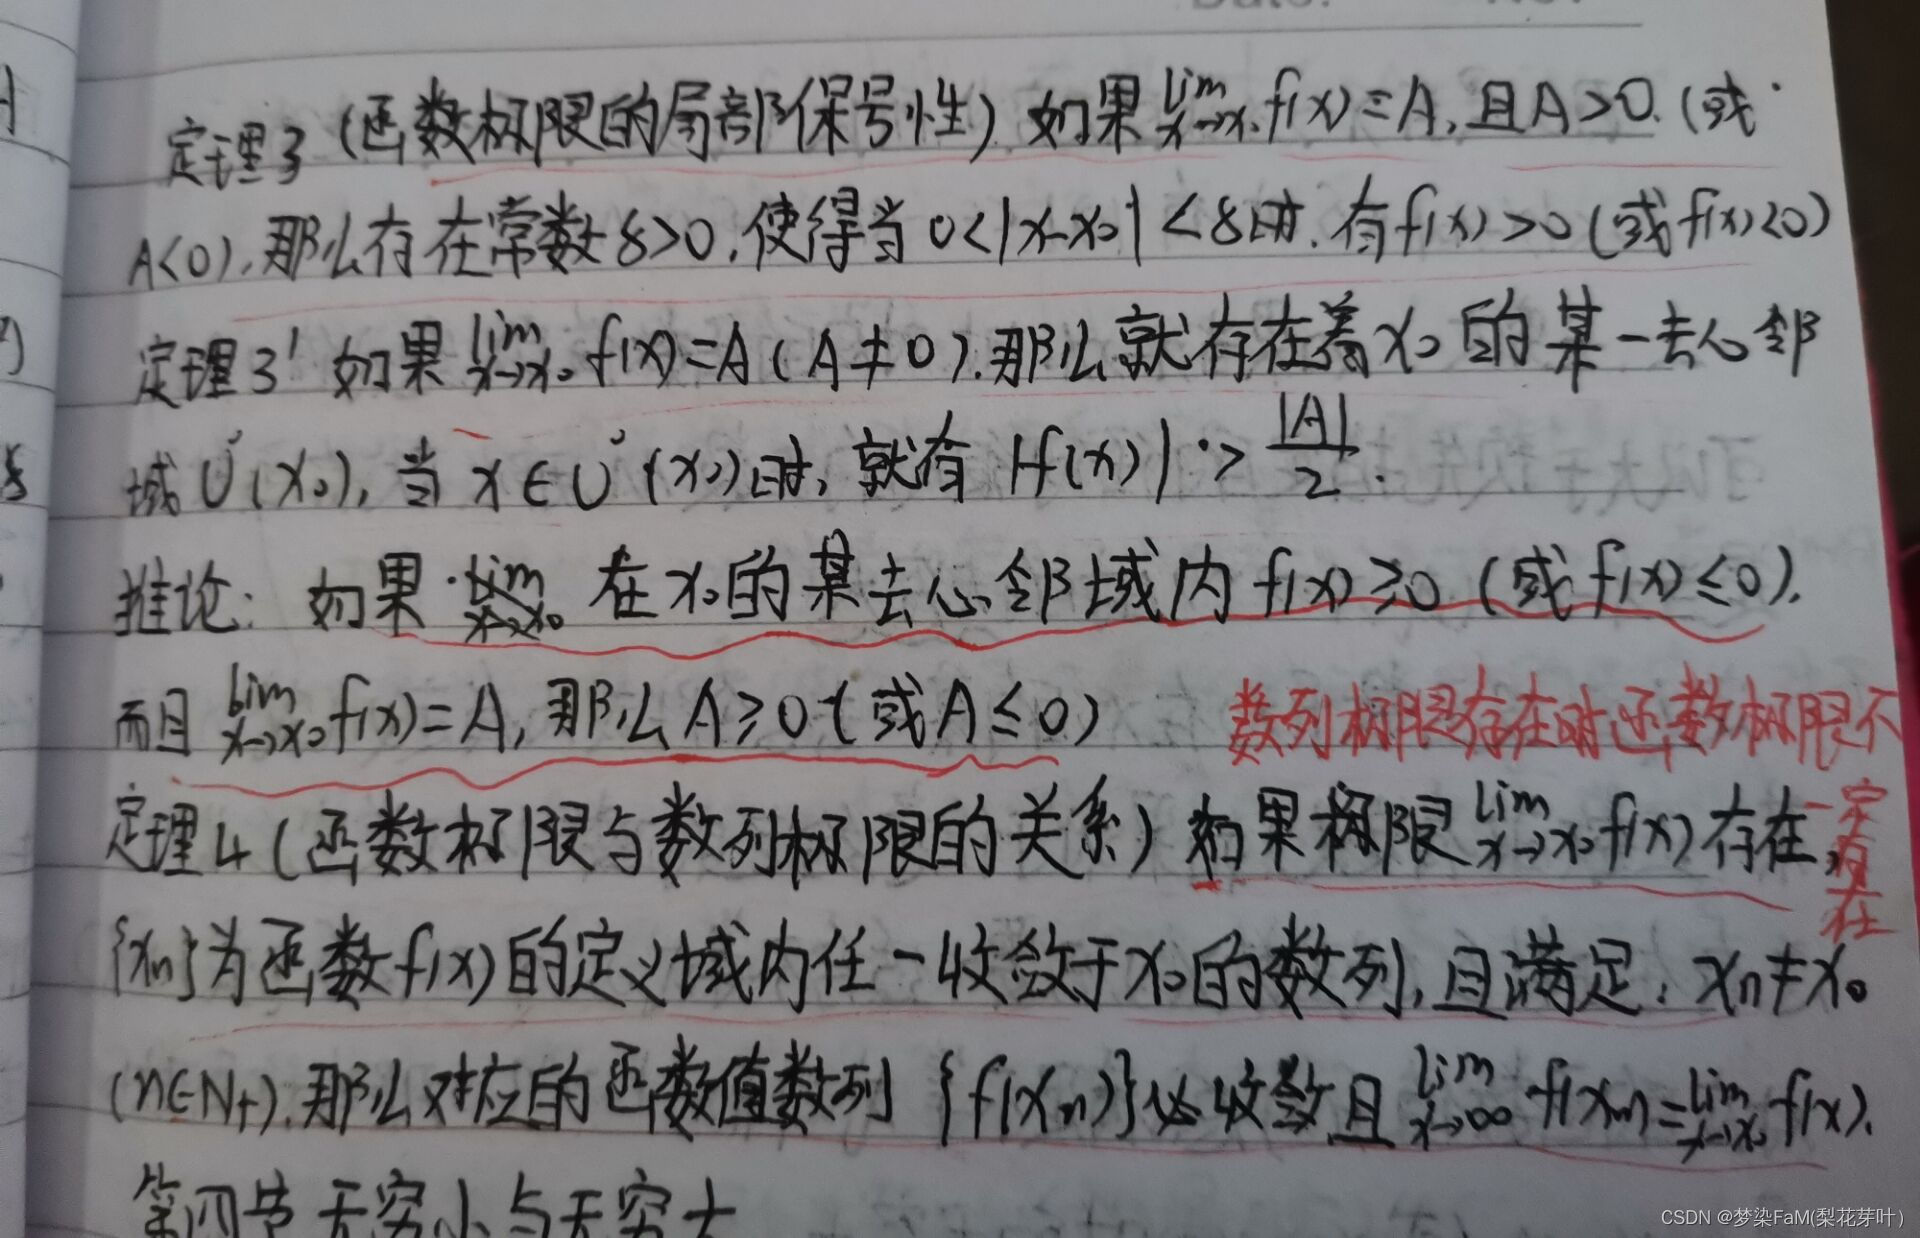 定理3 (函数极限的局部保号性) 如果 lim x→x₀ f(x)=A, 且A>0. (或
A<0), 那么存在常数δ>0, 使得当 0<|x-x₀|<δ时, 有f(x)>0 (或f(x)<0)
定理3' 如果 lim x→x₀ f(x)=A (A≠0), 那么就存在着x₀的某一去心邻
域 Ů(x₀), 当 x∈Ů(x₀)时, 就有 |f(x)|>|A|/2.
推论: 如果 在x₀的某去心邻域内 f(x)≥0 (或f(x)≤0),
而且 lim x→x₀ f(x)=A, 那么A≥0 (或A≤0)
数列极限存在时函数极限不
一定存在
定理4 (函数极限与数列极限的关系) 如果极限 lim x→x₀ f(x)存在,
{xn}为函数f(x)的定义域内任一收敛于x₀的数列, 且满足: xn≠x₀
(n∈N+), 那么对应的函数值数列 {f(xn)}必收敛且 lim x→∞ f(xn)=lim x→x₀ f(x).
第四节 无穷小与无穷大
CSDN @梦染FaM(梨花芽叶)